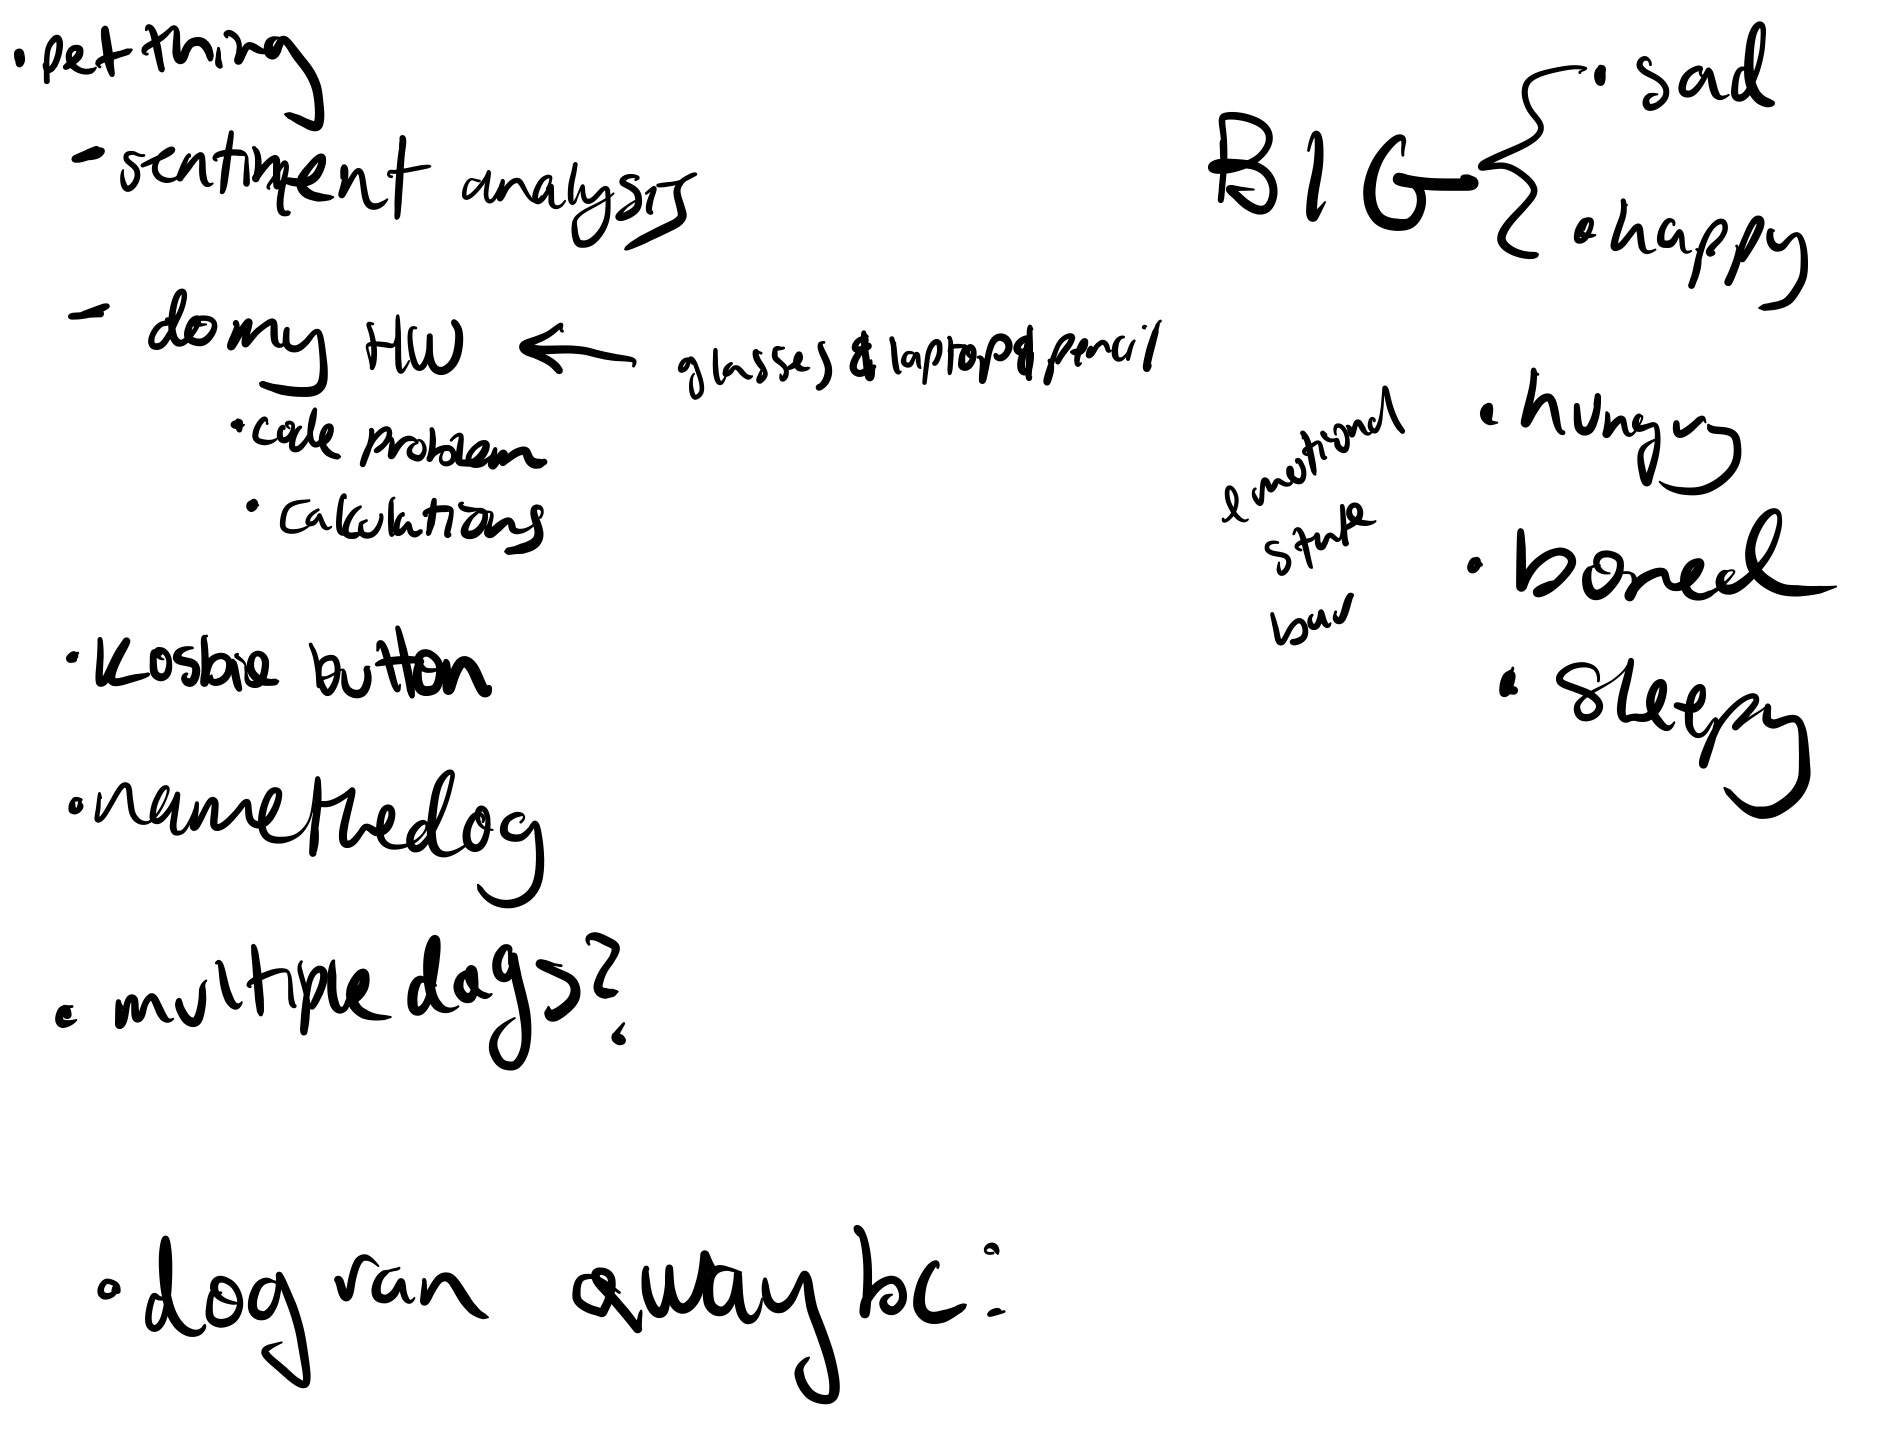 • pet thing
- sentiment analysis
- do my HW ← glasses & laptop & pencil
• code problem
• calculations
• Kosbie button
• name the dog
• multiple dogs?
• dog ran away bc:
BIG
• sad
• happy
• hungry
• bored
• sleepy
emotional
state
bar